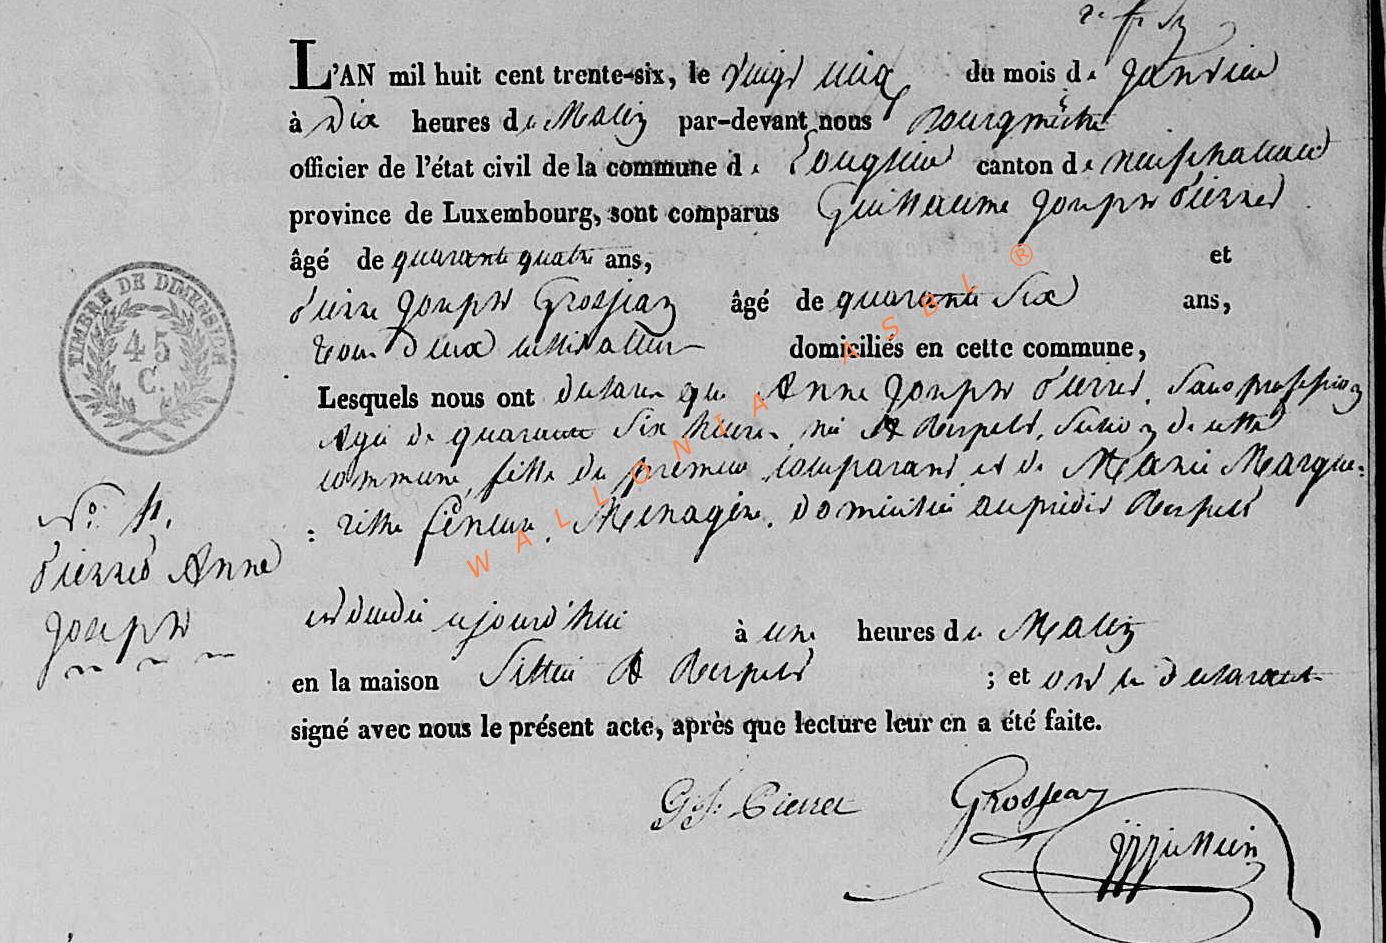 L'AN mil huit cent trente-six, le vingt cinq du mois de Janvier
à Dix heures du Matin par-devant nous Bourgmestre
officier de l'état civil de la commune de Longlier canton de neufchateau
province de Luxembourg, sont comparus Guillaume Joseph Pierret
âgé de quarante quatre ans, et
Pierre Joseph Grosjean âgé de quarante Six ans,
tous deux cultivateurs domiciliés en cette commune,
Lesquels nous ont declaré que Anne Joseph Pierret, Sans profession
Agée de quarante Six heures, née à Respelt, Section de cette
commune, fille du premier comparant et de Marie Margue=
=ritte, Menagère, domiciliée auprédit Respelt
TIMBRE DE DIMENSION
45
C.
No. 4.
Pierret Anne
Joseph
est decedée aujourd'hui à une heures du Matin
en la maison Sittuée à Respelt ; et ont les declarants
signé avec nous le présent acte, après que lecture leur en a été faite.
G. J. Pierret Grosjean
WALLONIA ASBL ®